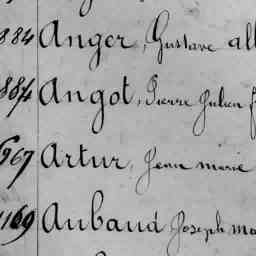 884 Anger, Gustave all
884 Angot, Pierre Julien f
967 Artur, Jean marie
1169 Aubaud Joseph ma